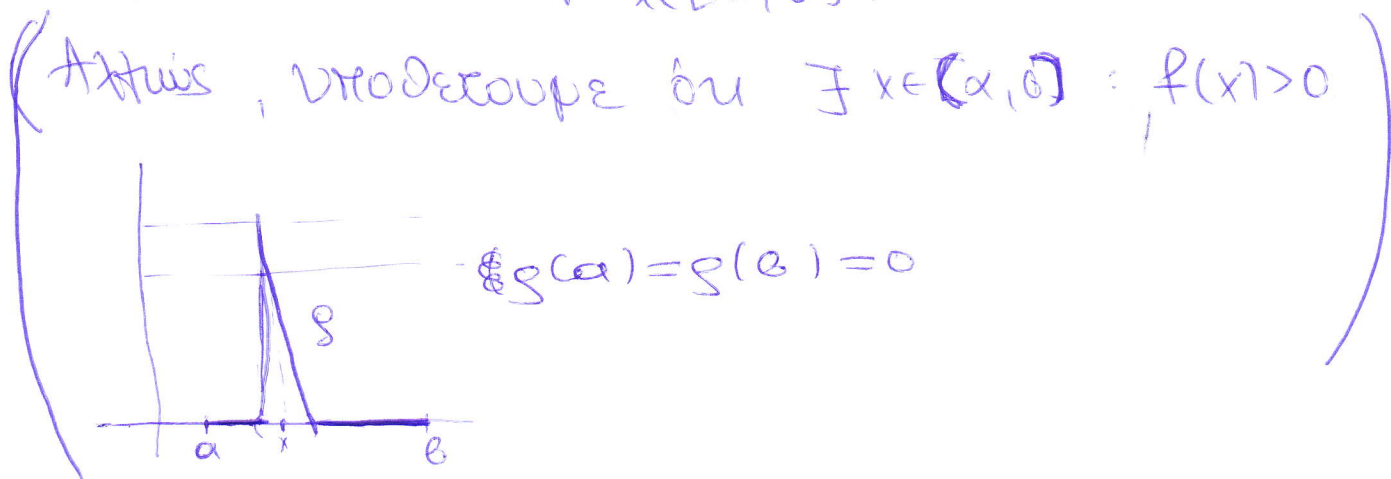 Αλλιώς, υποθέτουμε ότι ∃ x∈[α,β] : f(x)>0
g(a)=g(β)=0
g
a x β